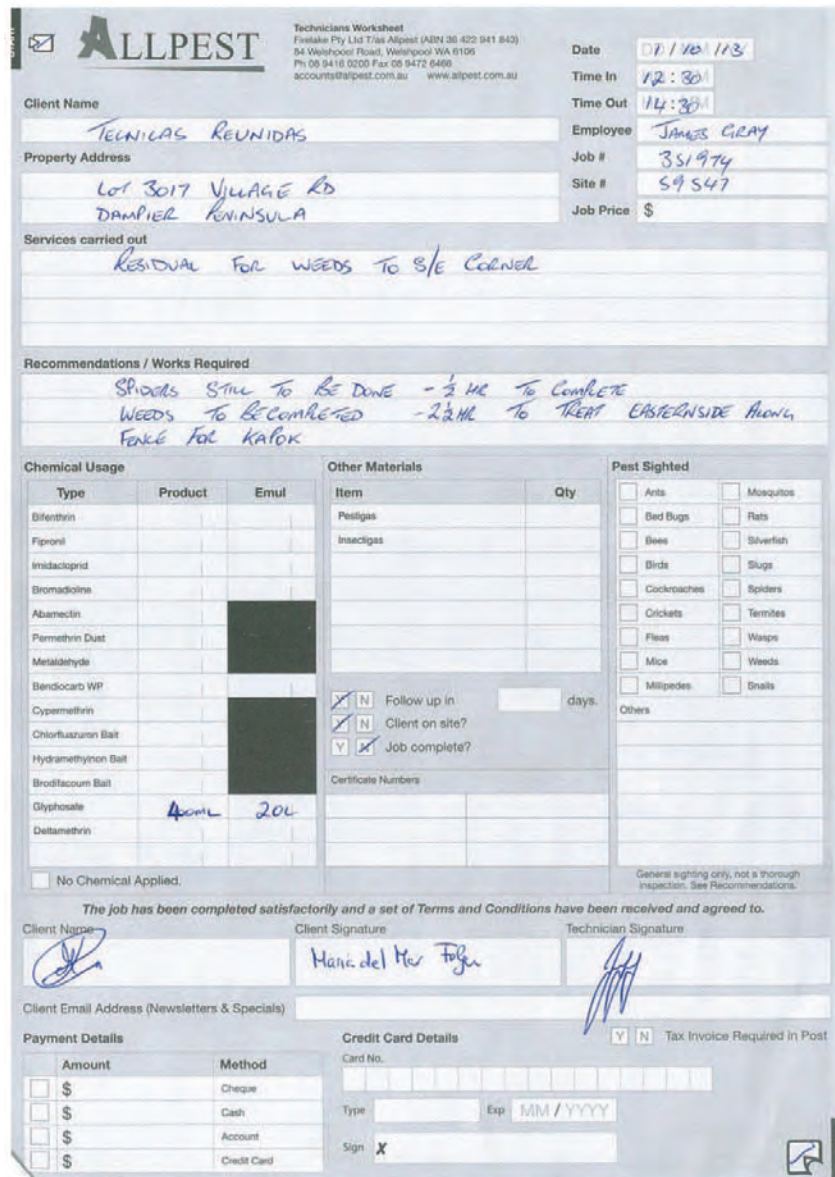 ALLPEST
Technicians Worksheet
Firelake Pty Ltd T/as Allpest (ABN 36 422 941 843)
84 Welshpool Road, Welshpool WA 6106
Ph 08 9416 0200 Fax 08 9472 6466
accounts@allpest.com.au www.allpest.com.au
Date / 10 / 13
Time In 12:30
Time Out 14:30
Employee JAMES GRAY
Job # 351974
Site # 59547
Job Price $
Client Name
TECNICAS REUNIDAS
Property Address
LOT 3017 VILLAGE RD
DAMPIER PENINSULA
Services carried out
RESIDUAL FOR WEEDS TO S/E CORNER
Recommendations / Works Required
SPIDERS STILL TO BE DONE - ½ HR TO COMPLETE
WEEDS TO BE COMPLETED - 2½ HR TO TREAT EASTERNSIDE ALONG
FENCE FOR KAPOK
Chemical Usage
Type Product Emul
Bifenthrin
Fipronil
Imidacloprid
Bromadioline
Abamectin
Permethrin Dust
Metaldehyde
Bendiocarb WP
Cypermethrin
Chlorfluazuron Bait
Hydramethylnon Bait
Brodifacoum Bait
Glyphosate 400ML 20L
Deltamethrin
No Chemical Applied.
Other Materials
Item Qty
Pestigas
Insectigas
Y N Follow up in days.
Y N Client on site?
Y N Job complete?
Certificate Numbers
Pest Sighted
Ants Mosquitos
Bed Bugs Rats
Bees Silverfish
Birds Slugs
Cockroaches Spiders
Crickets Termites
Fleas Wasps
Mice Weeds
Millipedes Snails
Others
General sighting only, not a thorough
inspection. See Recommendations.
The job has been completed satisfactorily and a set of Terms and Conditions have been received and agreed to.
Client Name Client Signature Technician Signature
Maria del Mar
Client Email Address (Newsletters & Specials)
Payment Details
Amount Method
$ Cheque
$ Cash
$ Account
$ Credit Card
Credit Card Details
Y N Tax Invoice Required in Post
Card No.
Type Exp MM / YYYY
Sign X